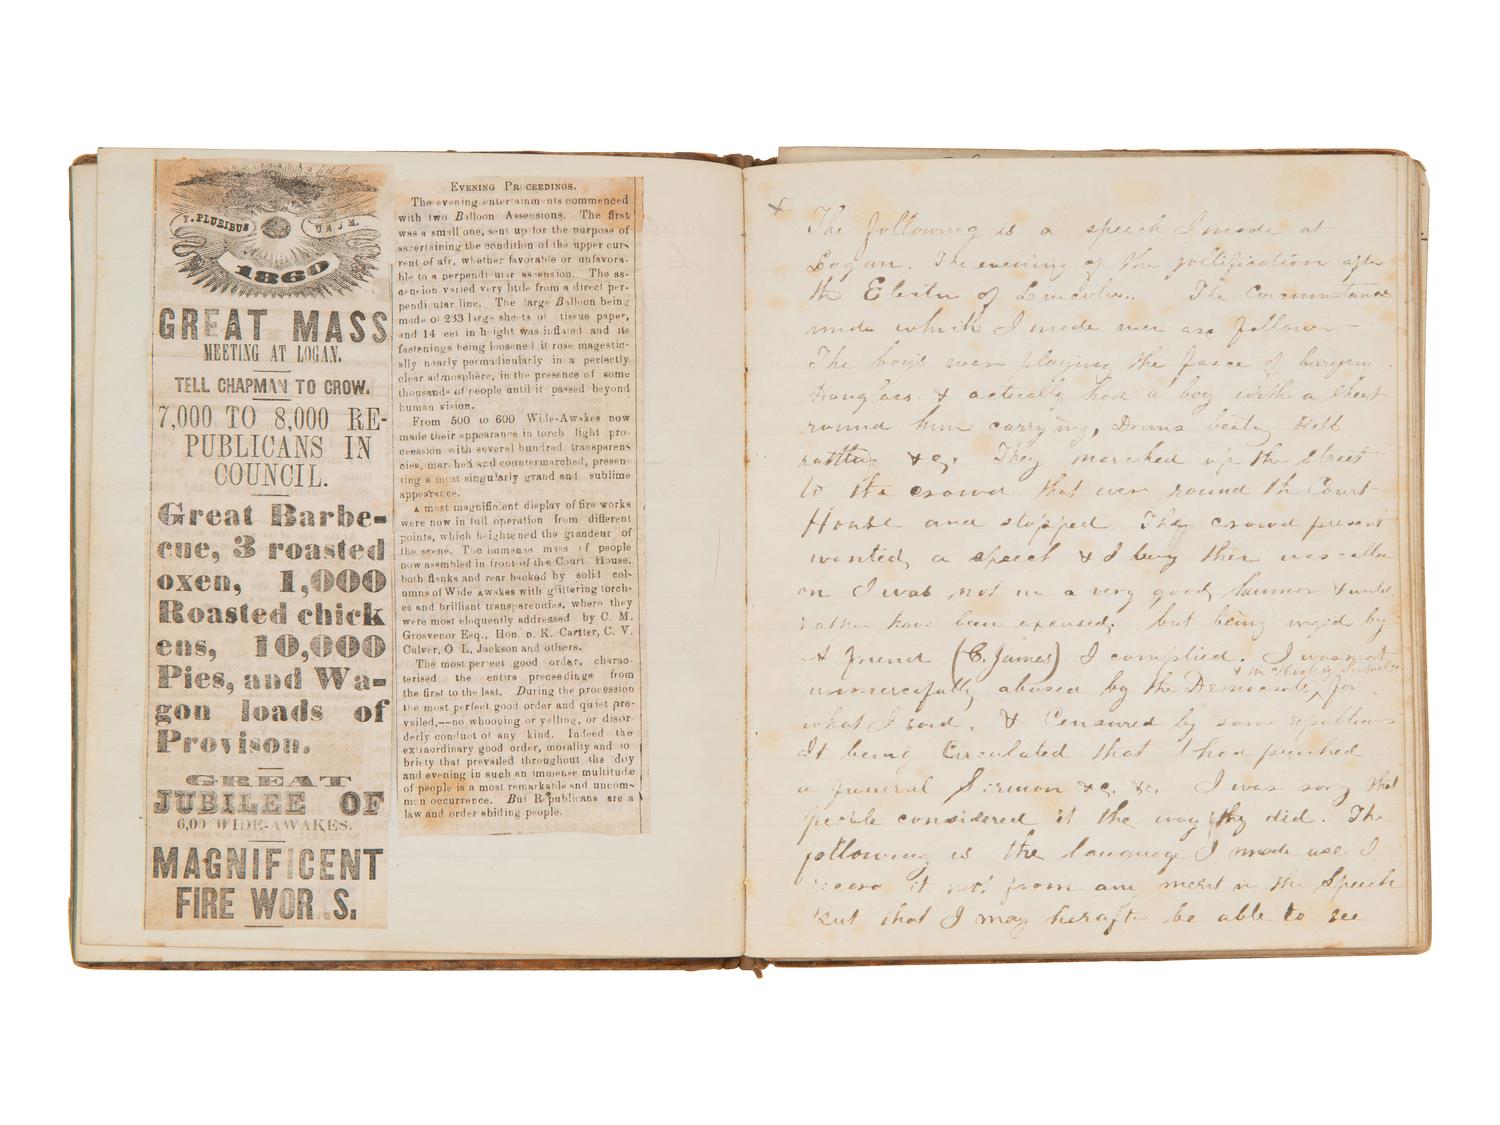 E. PLURIBUS UNUM.
1860
GREAT MASS
MEETING AT LOGAN.
TELL CHAPMAN TO CROW.
7,000 TO 8,000 RE-
PUBLICANS IN
COUNCIL.
Great Barbe-
cue, 3 roasted
oxen, 1,000
Roasted chick
ens, 10,000
Pies, and Wa-
gon loads of
Provison.
GREAT
JUBILEE OF
6,00 WIDE-AWAKES.
MAGNIFICENT
FIRE WOR S.
EVENING PROCEEDINGS.
The evening entertainments commenced
with two Balloon Assensions. The first
was a small one, sent up for the purpose of
ascertaining the condition of the upper cur-
rent of air, whether favorable or unfavora-
ble to a perpendicular assension. The as-
cension varied very little from a direct per-
pendicular line. The large Balloon being
made of 233 large sheets of tissue paper,
and 14 feet in height was inflated and its
fastenings being loosened it rose magestic-
ally nearly permadicularly in a perfectly
clear admosphere, in the presence of some
thousands of people until it passed beyond
human vision.
From 500 to 600 Wide-Awakes now
made their appearance in torch light pro-
cession with several hundred transparen-
cies, marched and countermarched, presen-
ting a most singularly grand and sublime
appearance.
A most magnificent display of fire works
were now in full operation from different
points, which heightened the grandeur of
the scene. The immense mass of people
now assembled in front of the Court House,
both flanks and rear backed by solid col-
umns of Wide Awakes with glittering torch-
es and brilliant transparencies, where they
were most eloquently addressed by C. M.
Grosvenor Esq., Hon. D. K. Cartter, C. V.
Culver, O L. Jackson and others.
The most perfect good order, charac-
terised the entire proceedings from
the first to the last. During the procession
the most perfect good order and quiet pre-
vailed,—no whooping or yelling, or disor-
derly conduct of any kind. Indeed the
extraordinary good order, morality and so
briety that prevailed throughout the day
and evening in such an immense multitude
of people is a most remarkable and uncom-
mon occurrence. But Republicans are a
law and order abiding people.
x
The following is a speech I made at
Logan. The evening of the jollification after
the Electn of Lincoln. The Circumstances
unde which I made wer as follows—
The boys wer playing the farce of burying
Douglass & actually had a boy with a Sheet
round him carrying, Drums beating Bells
rattling &c. They marched up the Street
to the crowd that wer round the Court
House and stopped. The crowd present
wanted a speech & I being ther was
on I was not in a very good humor & would
rather have been excused, but being urged by
a friend (C. James) I complied. I was most
unmercifully abused by the Democrats, for
what I said. & Censured by some republicans
It being Circulated that I had preached
a funeral Sermon &c. &c. I was sorry that
people considered it the way they did. The
following is the language I made use. I
it not from any merit in the Speech
But that I may heraftr be able to see